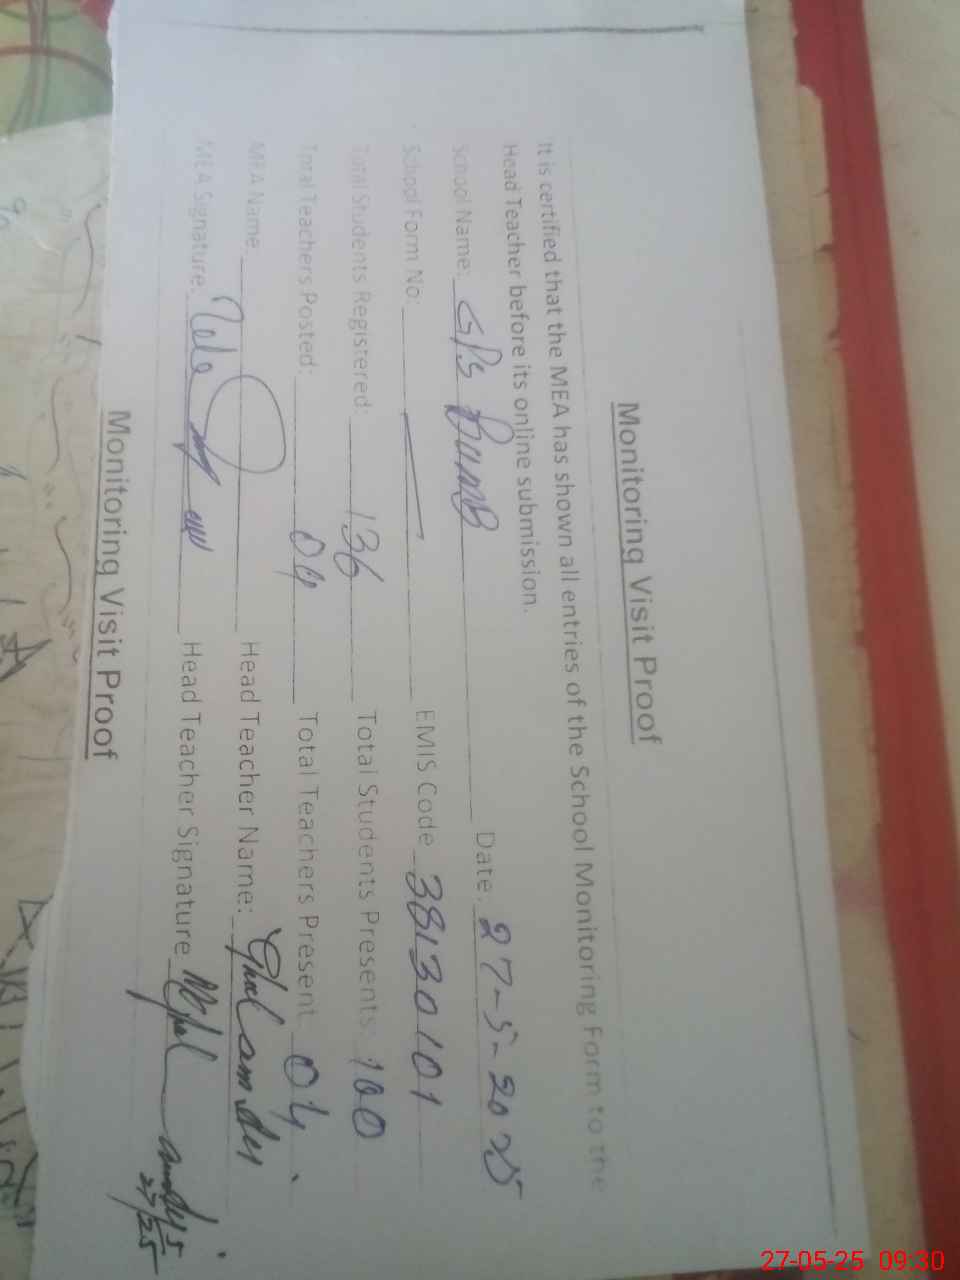 Monitoring Visit Proof
It is certified that the MEA has shown all entries of the School Monitoring Form to the
Head Teacher before its online submission.
School Name: GPS Bumb Date: 27-5-2025
School Form No: EMIS Code 38130101
Total Students Registered: 136 Total Students Presents: 100
Total Teachers Posted: 04 Total Teachers Present 04
MEA Name: Head Teacher Name:
MEA Signature: Head Teacher Signature
27/5/25
Monitoring Visit Proof
27-05-25 09:30